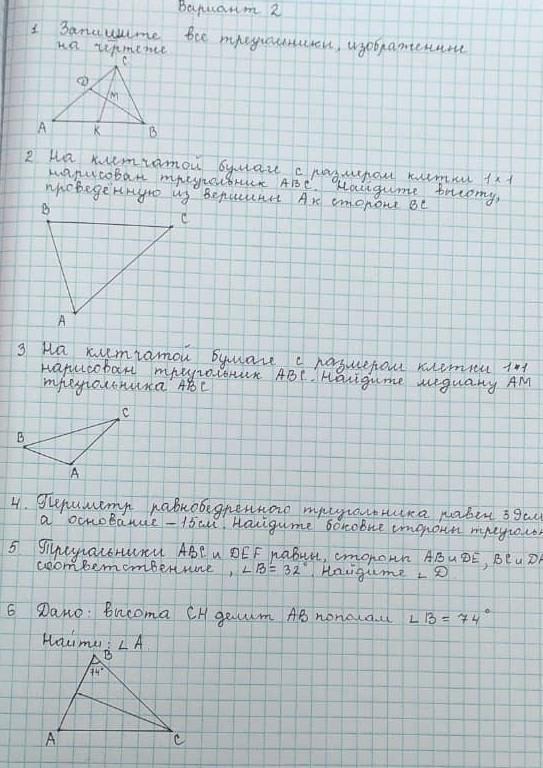 Вариант 2
1 Запишите все треугольники, изображенные
на чертеже
C
D
M
A K B
2 На клетчатой бумаге с размером клетки 1×1
нарисован треугольник ABC. Найдите высоту,
проведённую из вершины A к стороне BC
B C
A
3 На клетчатой бумаге с размером клетки 1×1
нарисован треугольник ABC. Найдите медиану AM
треугольника ABC
C
B
A
4. Периметр равнобедренного треугольника равен 39см
а основание – 15см. Найдите боковые стороны треуголь
5 Треугальники ABC и DEF равны, стороны AB и DE, BC и
соответственные, ∠B = 32°. Найдите ∠D
6 Дано: высота CH делит AB пополам ∠B = 74°
Найти: ∠A
B
74°
A C